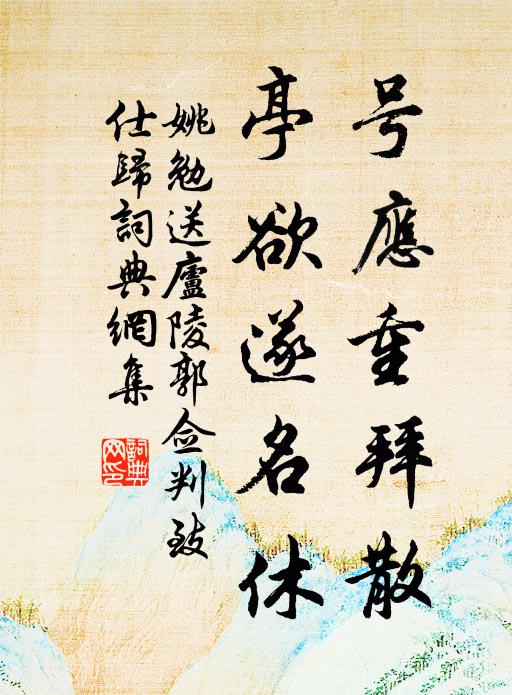 号應重拜散
亭欲遂名休
姚勉送廬陵郭佥判致
仕歸詞典網集
詞典
网印